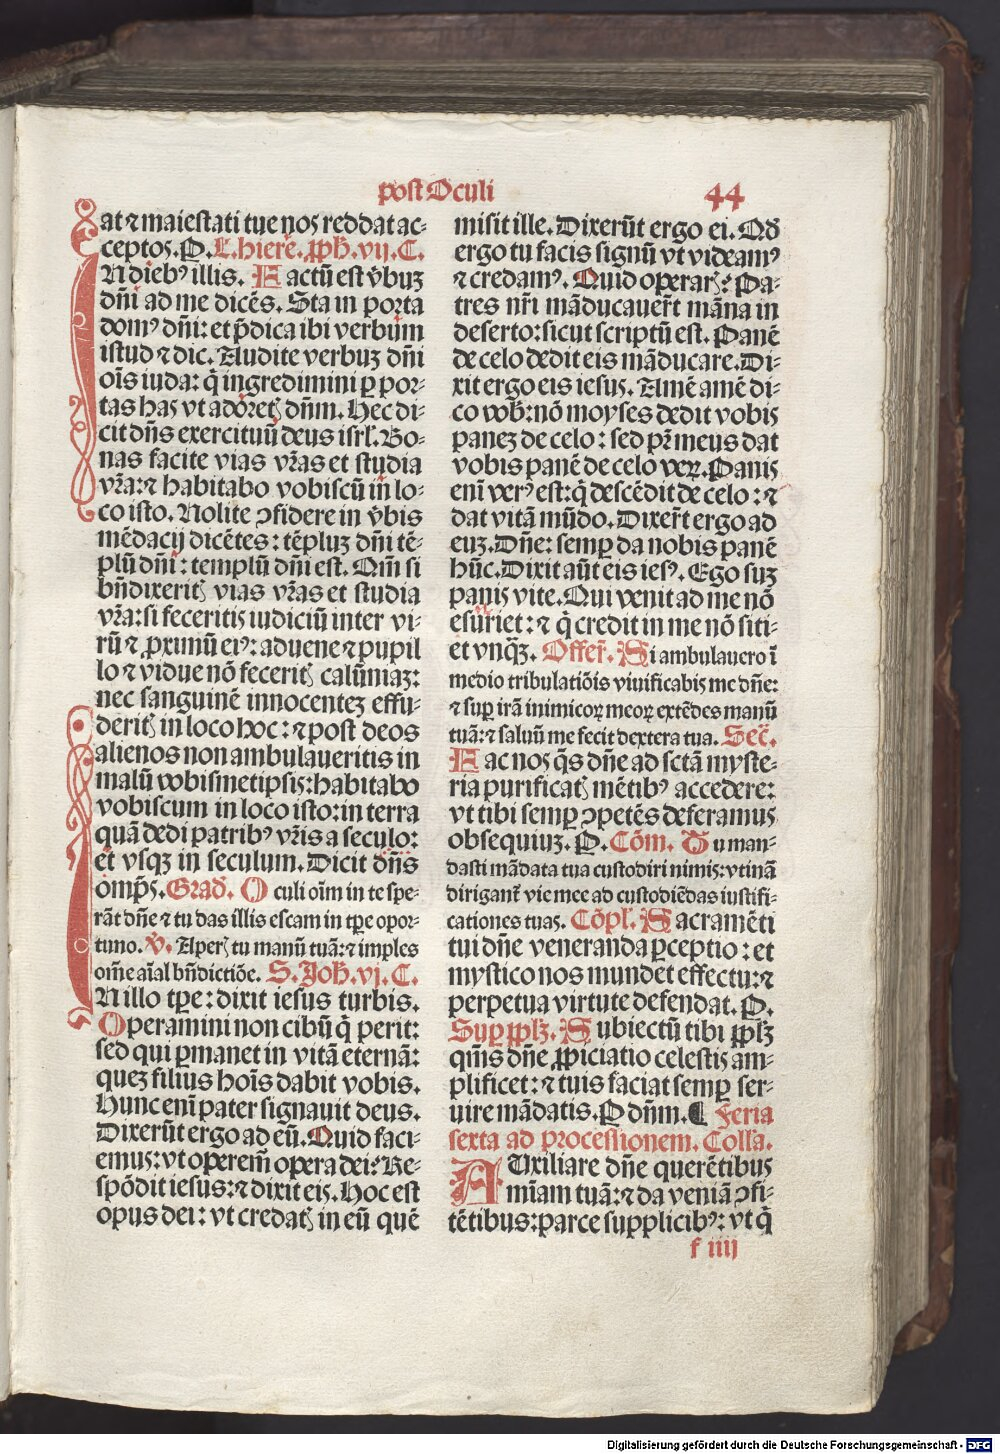 post Oculi 44
at ⁊ maiestati tue nos reddat ac-
ceptos. P. L. hiere. ꝓph̄. vij. C.
IN dieb⁹ illis. Factū est v̄buꝫ
dn̄i ad me dicēs. Sta in porta
dom⁹ dn̄i: et p̄dica ibi verbum
istud ⁊ dic. Audite verbuꝫ dn̄i
oīs iuda: q̄ ingredimini ꝑ por-
tas has vt adoretꝭ dn̄m. Hec di-
cit dn̄s exercituū deus isrl̄. Bo-
nas facite vias vr̄as et studia
vr̄a: ⁊ habitabo vobiscū in lo-
co isto. Nolite ꝯfidere in v̄bis
mēdacij dicētes: tēpluꝫ dn̄i tē-
plū dn̄i: templū dn̄i est. Qm̄ si
bn̄dixeritꝭ vias vr̄as et studia
vr̄a: si feceritis iudiciū inter vi-
rū ⁊ ꝓximū ei⁹: aduene ⁊ pupil
lo ⁊ vidue nō feceritꝭ calūniaꝫ:
nec sanguinē innocenteꝫ effu-
deritꝭ in loco hoc: ⁊ post deos
alienos non ambulaueritis in
malū vobismetipsis: habitabo
vobiscum in loco isto: in terra
quā dedi patrib⁹ vr̄is a seculo:
et vsqꝫ in seculum. Dicit dn̄s
omp̄s. Grad̄. Oculi oīm in te spe-
rāt dn̄e ⁊ tu das illis escam in tꝑe opor-
tuno. V̄. Aperꝭ tu manū tuā: ⁊ imples
om̄e aīal bn̄dictiōe. S. Joh̄. vj. C.
IN illo tꝑe: dixit iesus turbis.
Operamini non cibū q̄ perit:
sed qui ꝑmanet in vitā eternā:
queꝫ filius hoīs dabit vobis.
Hunc enī pater signauit deus.
Dixerūt ergo ad eū. Quid faci-
emus: vt operem̄ opera dei? Re-
spōdit iesus: ⁊ dixit eis. Hoc est
opus dei: vt credatꝭ in eū quē
misit ille. Dixerūt ergo ei. Qd̄
ergo tu facis signū vt videam⁹
⁊ credam⁹. Quid operarꝭ? Pa-
tres nr̄i māducauer̄t māna in
deserto: sicut scriptū est. Panē
de celo dedit eis māducare. Di-
xit ergo eis iesus. Amē amē di-
co vob̄: nō moyses dedit vobis
paneꝫ de celo: sed pr̄ meus dat
vobis panē de celo veꝝ. Panis
enī ver⁹ est: q̄ descēdit de celo: ⁊
dat vitā mūdo. Dixer̄t ergo ad
euꝫ. Dn̄e: semꝑ da nobis panē
hūc. Dixit aūt eis ies⁹. Ego suꝫ
panis vite. Qui venit ad me nō
esuriet: ⁊ q̄ credit in me nō siti-
et vnq̄ꝫ. Offer̄. Si ambulauero ī
medio tribulatiōis viuificabis me dn̄e:
⁊ suꝑ irā inimicoꝝ meoꝝ extēdes manū
tuā: ⁊ saluū me fecit dextera tua. Sec̄.
Fac nos q̄s dn̄e ad sctā myste-
ria purificatꝭ mētib⁹ accedere:
vt tibi semꝑ ꝯpetēs deferamus
obsequiuꝫ. P. Cōm. Tu man-
dasti mādata tua custodiri nimis: vtinā
dirigant̄ vie mee ad custodiēdas iustifi-
cationes tuas. Cōpl̄. Sacramēti
tui dn̄e veneranda ꝑceptio: et
mystico nos mundet effectu: ⁊
perpetua virtute defendat. P.
Suꝑ ꝓpl̄ꝫ. Subiectū tibi ꝓpl̄ꝫ
qm̄s dn̄e ꝓpiciatio celestis am-
plificet: ⁊ tuis faciat semꝑ ser-
uire mādatis. P dn̄m. ¶ Feria
sexta ad processionem. Colla.
AUxiliare dn̄e querētibus
mīam tuā: ⁊ da veniā ꝯfi-
tētibus: parce supplicib⁹: vt q̄
f iiij
Digitalisierung gefördert durch die Deutsche Forschungsgemeinschaft - DFG